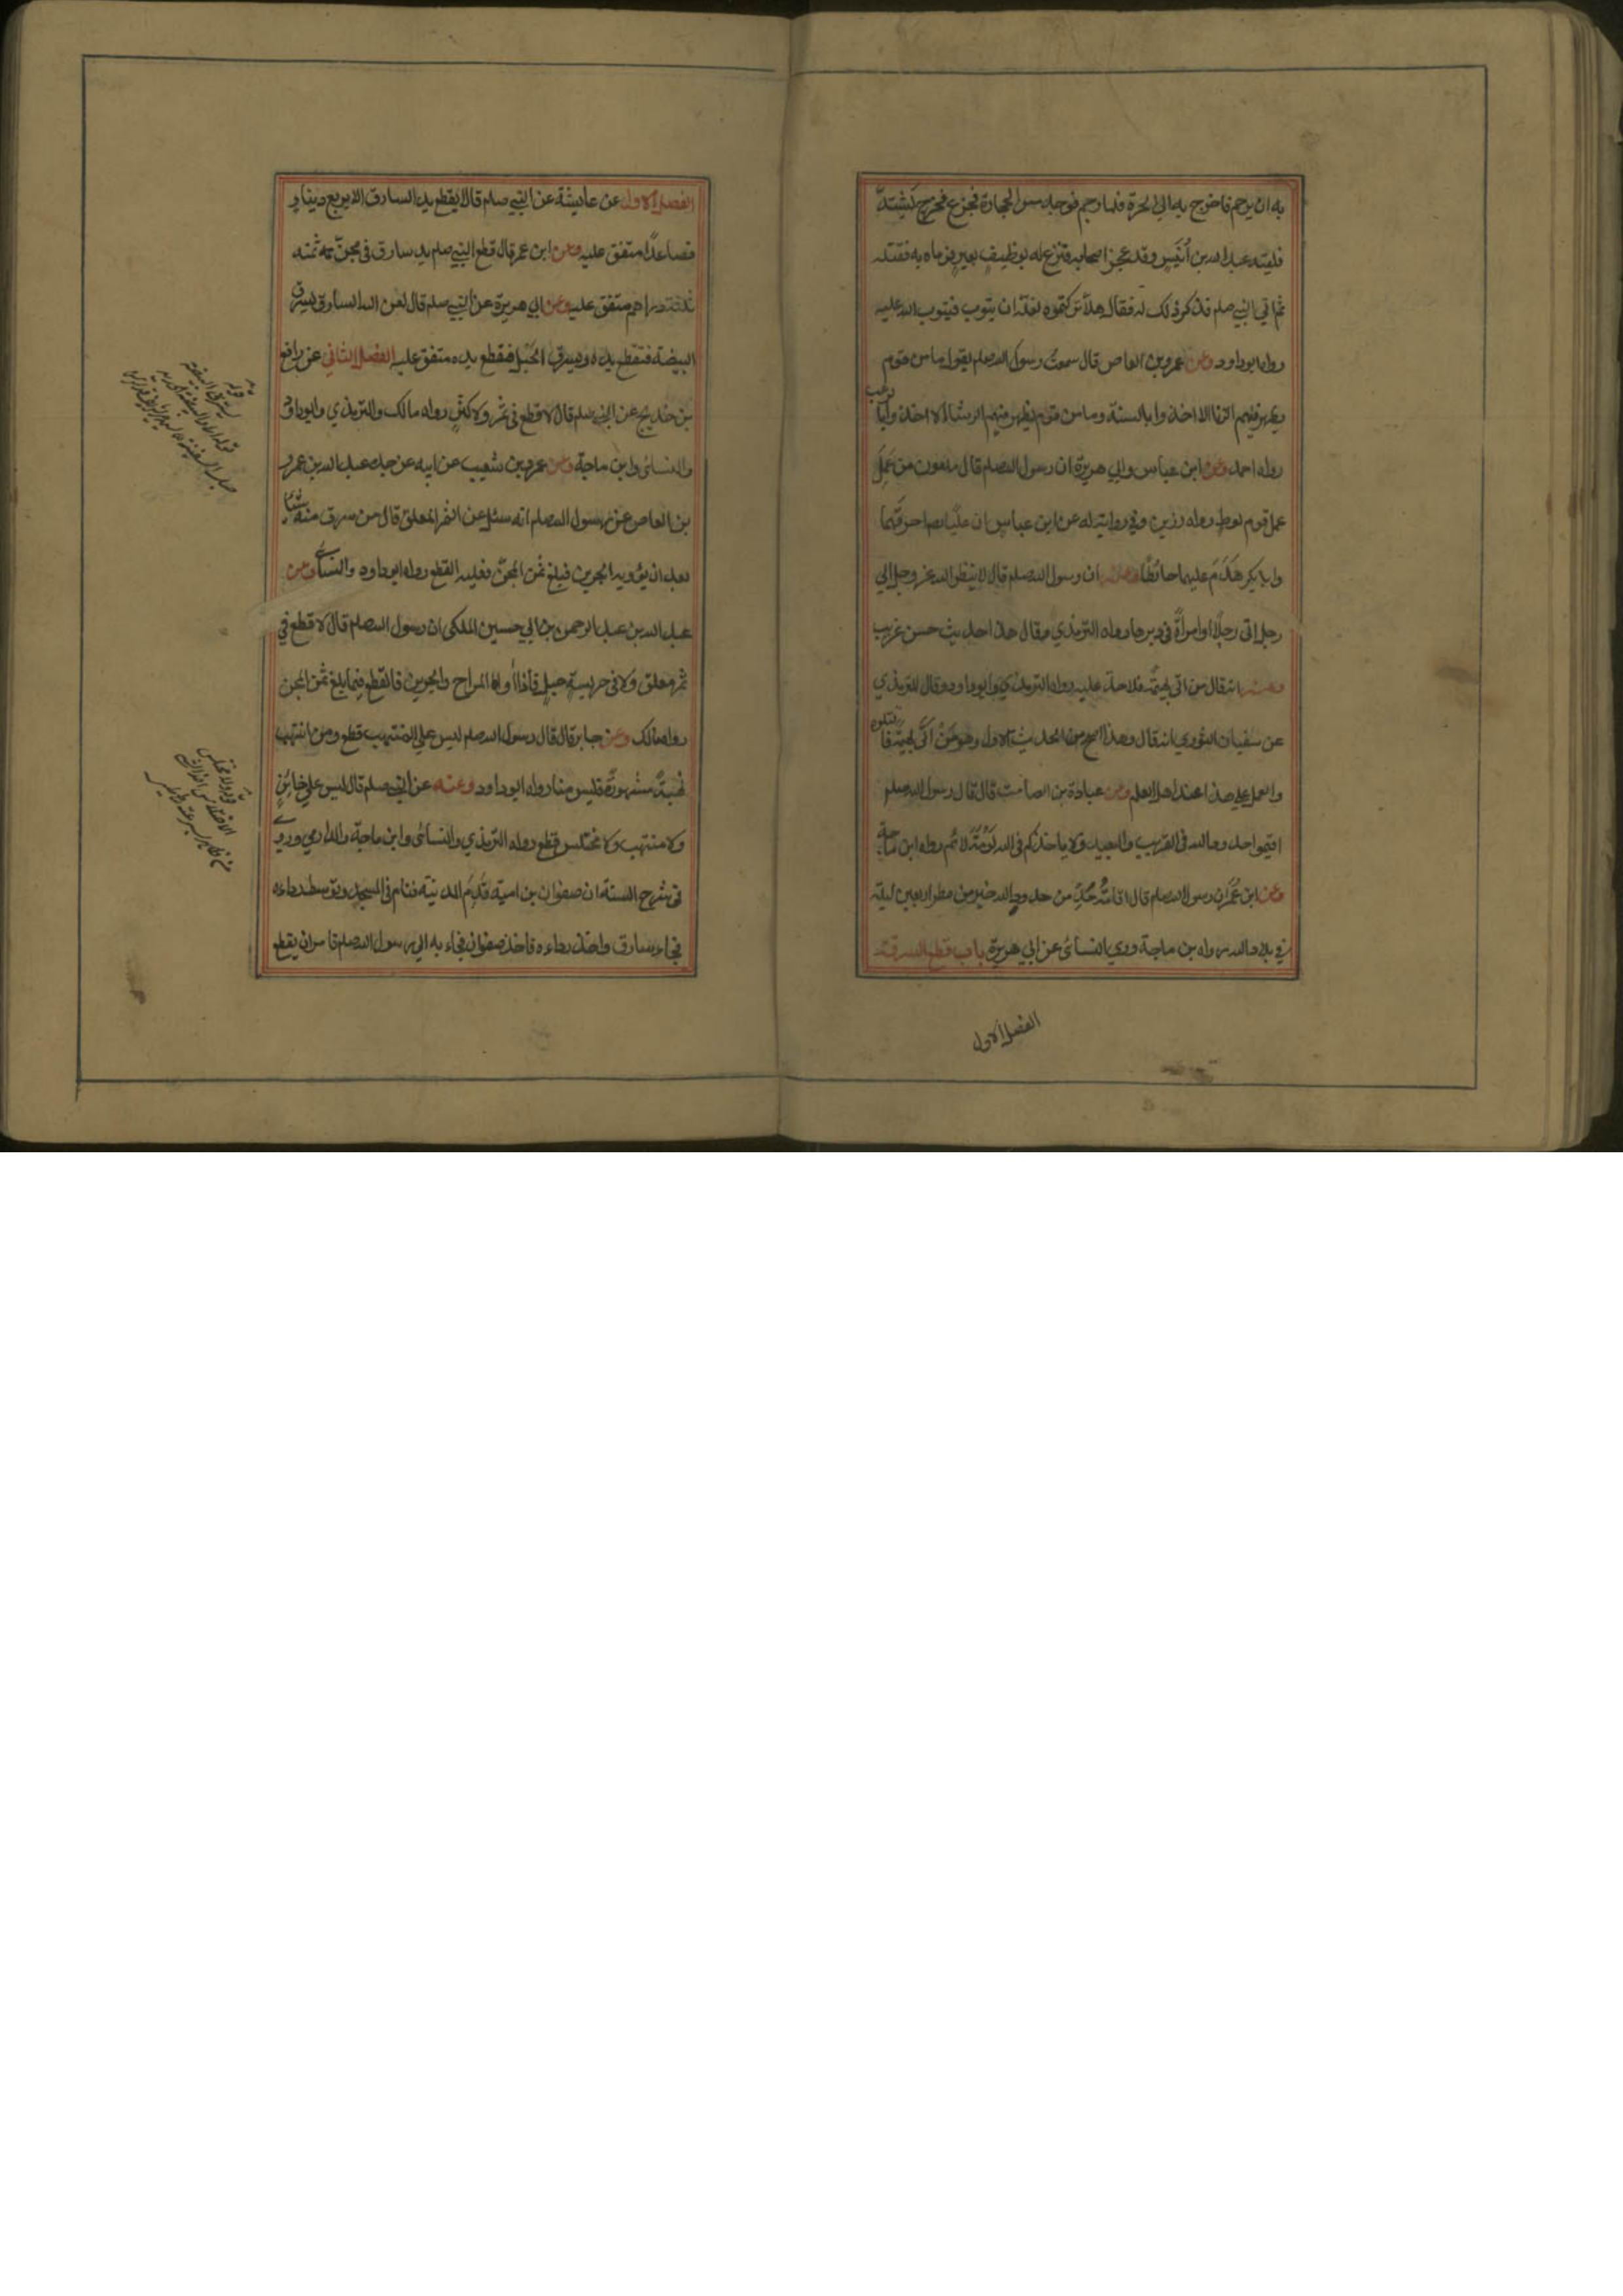 به ان يرجم فاخرج به الي الحرة فلما رجم فوجد مس الحجارة فجزع فخرج يشتد
فلقيه عبد الله بن أُنَيس وقد عجز اصحابه فنزع له بوظيف بعير فرماه به فقتله
ثم اتي النبي صلم فذكر ذلك له فقال هلا تركتموه لعله ان يتوب فيتوب الله عليه
رواه ابوداود وعن عمرو بن العاص قال سمعت رسول الله صلم يقول ما من قوم
يظهر فيهم الزنا الا اخذوا بالسنة وما من قوم يظهر فيهم الرشا الا اخذوا با
لرعب
رواه احمد وعن ابن عباس وابي هريرة ان رسول الله صلم قال ملعون من عَمِلَ
عمل قوم لوط رواه رزين وفي رواية له عن ابن عباس ان عليًا رض احرقهما
وابا بكر هَدَمَ عليهما حائطًا وعنه ان رسول الله صلم قال لا ينظر الله عز وجل الي
رجل اتى رجلًا او امرأةً في دبرها رواه الترمذي وقال هذا حديث حسن غريب
وعنه انه قال من اتى بهيمة فلا حد عليه رواه الترمذي وابوداود وقال الترمذي
عن سفيان الثوري انه قال وهذا اصح من الحديث الاول وهو مَنْ اتى بهيمة فا
قتلوه
والعمل علي هذا عند اهل العلم وعن عبادة بن الصامت قال قال رسول الله صلم
اقيموا حدود الله في القريب والبعيد ولا ياخذكم في الله لَوْمَةُ لائم رواه ابن ماجة
وعن ابن عُمَر ان رسول الله صلم قال اقامةُ حَدٍّ من حدود الله خير من مطر اربعين ليلة
في بلاد الله رواه بن ماجة وروي النسائى عن ابي هريرة باب قطع السرقة
الفصل الاول
الفصل الاول عن عايشة عن النبي صلم قال لا يقطع يد السارق الا بربع دينار
فصاعدًا متفق عليه وعن ابن عمر قال قطع النبي صلم يد سارق في مجنّ ثمنه
ثلثة دراهم متفق عليه وعن ابي هريرة عن النبي صلم قال لعن الله السارق يسرق
البيضة فتقطع يده ويسرق الحَبْل فتقطع يده متفق عليه الفصل الثاني عن رافع
بن خديج عن النبي صلم قال لا قطع في ثمر ولا كثر رواه مالك والترمذي وابوداود
والنسائى وابن ماجة وعن عمرو بن شعيب عن ابيه عن جده عبد الله بن عمرو
بن العاص عن رسول الله صلم انه سئل عن الثمر المعلق قال من سرق منه شيئًا
بعد ان يؤويه الجرين فبلغ ثمن المجنّ فعليه القطع رواه ابوداود والنسائى وعن
عبد الله بن عبد الرحمن بن ابي حسين المكى ان رسول الله صلم قال لا قطع في
ثمر معلق ولا في حريسة جبل فاذا أواه المراح والجرين فالقطع فيما بلغ ثمن المجن
رواه مالك وعن جابر قال قال رسول الله صلم ليس علي المنتهب قطع ومن انتهب
نُهبةً مشهورةً فليس منا رواه ابوداود وعنه عن النبي صلم قال ليس علي خائنٍ
ولا منتهب ولا مختلس قطع رواه الترمذي والنسائى وابن ماجة والدارمي وروي
في شرح السنة ان صفوان بن امية قَدِمَ المدينة فنام في المسجد وتوسد رداءه
فجاء سارق واخذ رداءه فاخذه صفوان فجاء به الي رسول الله صلم فامر ان يقطع